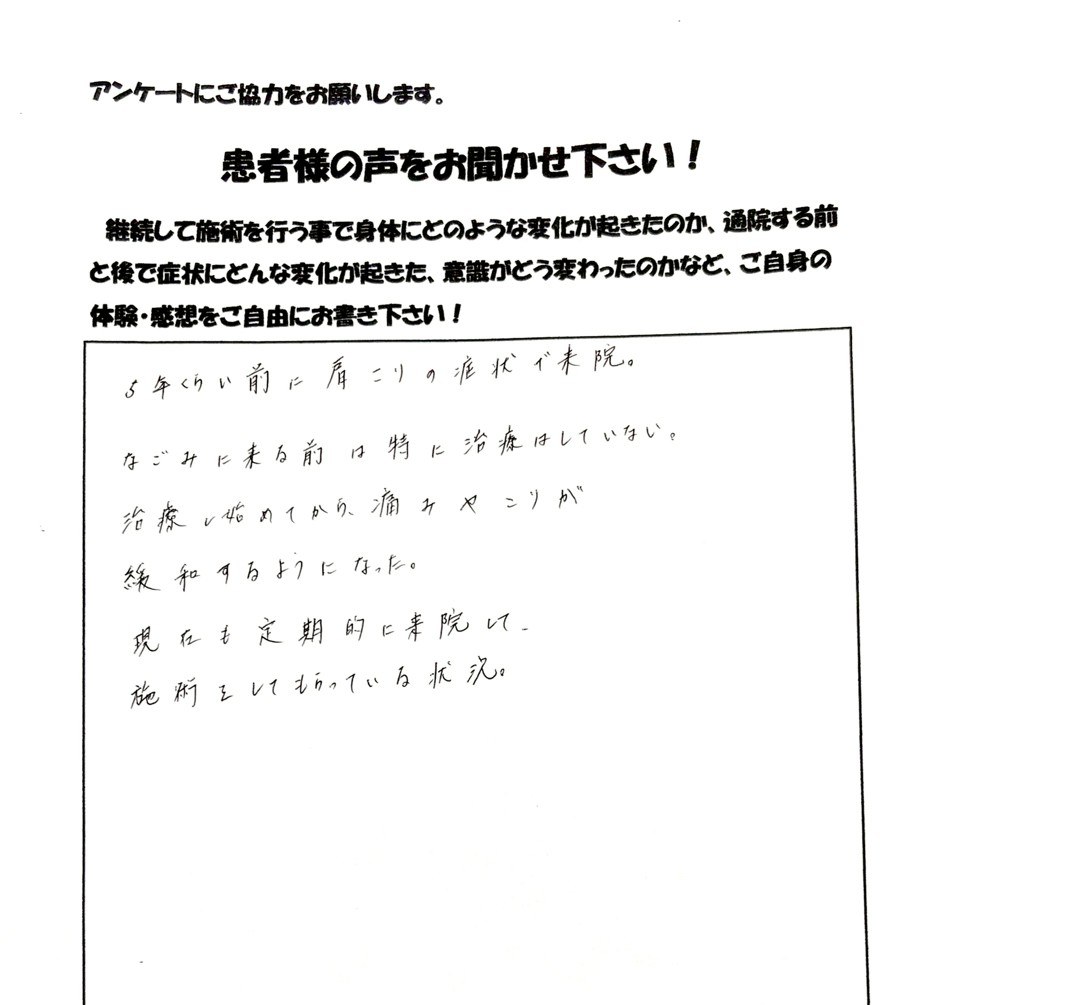 アンケートにご協力をお願いします。
患者様の声をお聞かせ下さい！
継続して施術を行う事で身体にどのような変化が起きたのか、通院する前
と後で症状にどんな変化が起きた、意識がどう変わったのかなど、ご自身の
体験・感想をご自由にお書き下さい！
5年くらい前に肩こりの症状で来院。
なごみに来る前は特に治療はしていない。
治療し始めてから、痛みやこりが
緩和するようになった。
現在も定期的に来院して、
施術をしてもらっている状況。